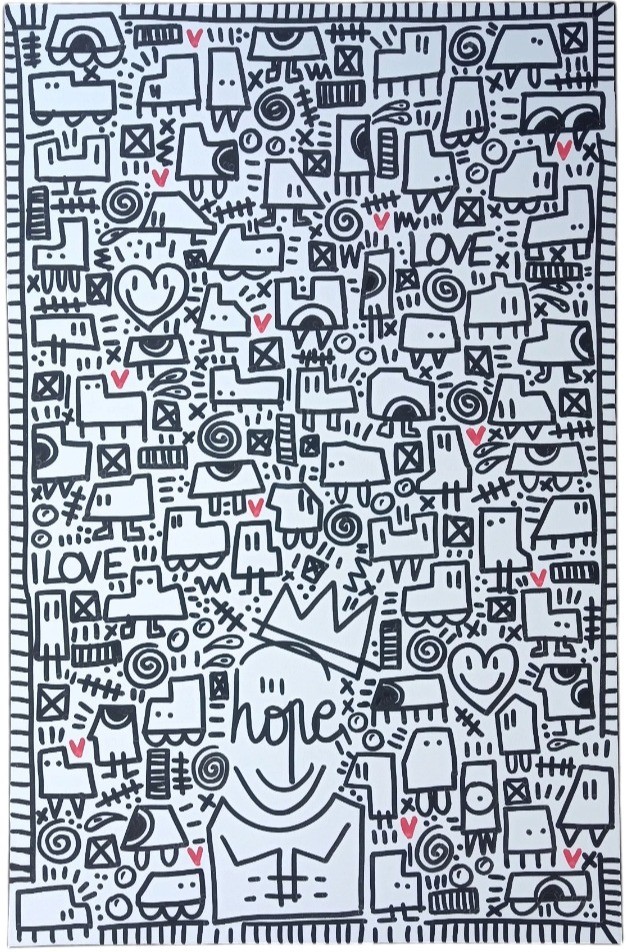 LOVE
LOVE
hope